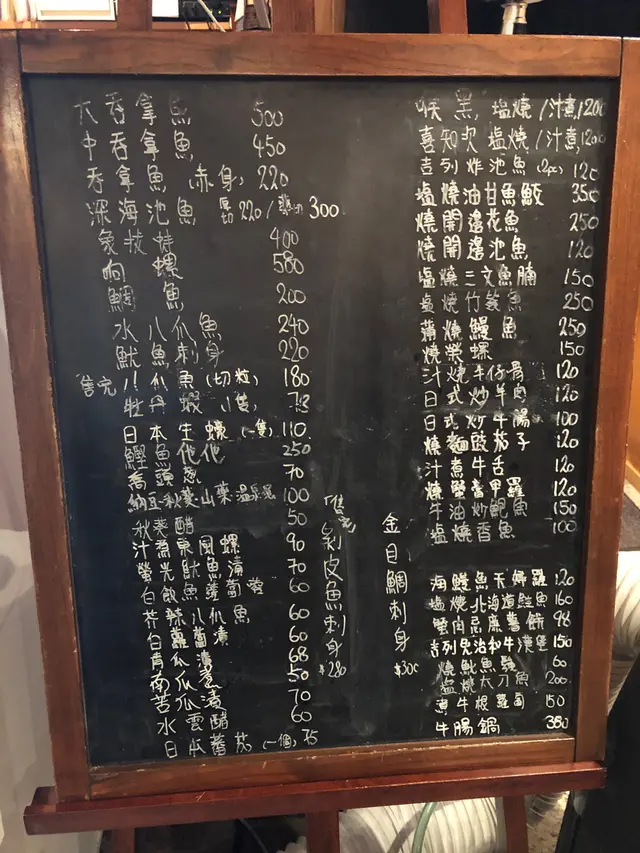 大吞拿魚 500
中吞拿魚 450
吞拿魚 (赤身) 220
深海池魚 厚切 220 / 薄切 300
象拔蚌 400
响螺 580
鯛魚 200
水八爪魚 240
魷魚刺身 220
售完 八爪魚 (切粒) 180
牡丹蝦 (隻)
日本生蠔 (一隻) 110
鰹魚他他 250
70
納豆秋葵山藥温泉蛋 100
秋葵醋 50
汁煮東風螺 90
螢光魷魚 70
60
芥辣八爪魚 60
60
68
50
70
水雲醋 60
日本蕃茄 (一個) 75
售完
剝皮魚刺身
$280
金目鯛刺身
$300
喉黑 塩燒/汁煮 1200
喜知次 塩燒/汁煮 1200
吉列炸池魚 (2pc) 120
塩燒油甘魚鮫 350
燒開邊花魚 250
燒開邊池魚 120
塩燒三文魚腩 150
塩燒竹筴魚 250
蒲燒鰻魚 250
燒榮螺 150
汁燒牛仔骨 120
日式炒羊肉 120
日式炒牛腸 100
燒麵豉茄子 120
汁煮牛舌 120
燒蟹膏甲羅 120
牛油炒鮑魚 150
塩燒香魚 100
海鰻魚天婦羅 120
塩燒北海道鮭魚 160
蟹肉忌廉薯餅 98
吉列免治和牛漢堡 150
燒魷魚鬚 60
塩燒太刀魚 200
煮牛根蘿蔔 150
牛腸鍋 380